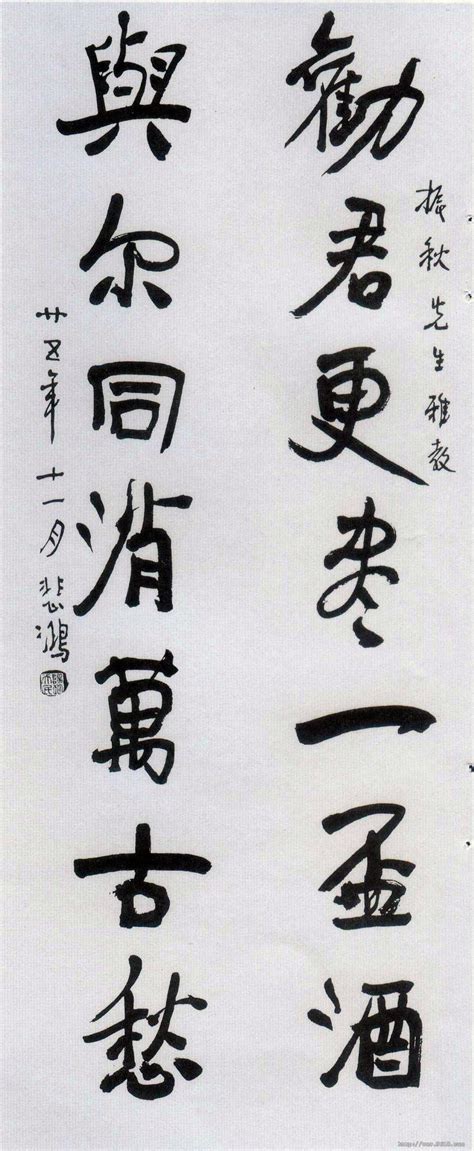 振秋先生雅教
勸君更尽一盃酒
與尔同消萬古愁
廿五年十一月 悲鴻